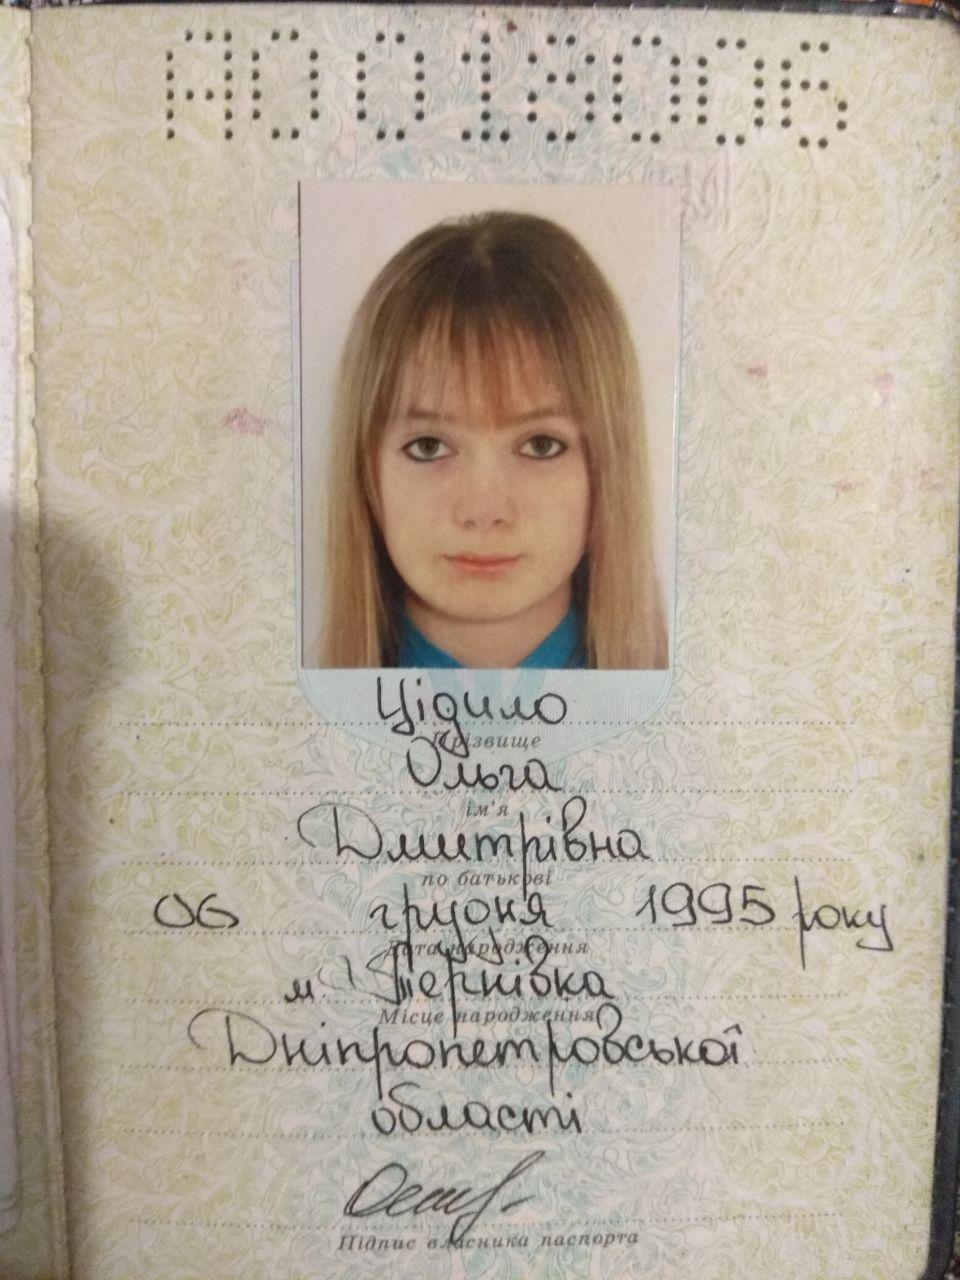 АО018006
Цідило
Прізвище
Ольга
ім'я
Дмитрівна
по батькові
06 грудня 1995 року
Дата народження
м Тернівка
Місце народження
Дніпропетровської
області
Підпис власника паспорта